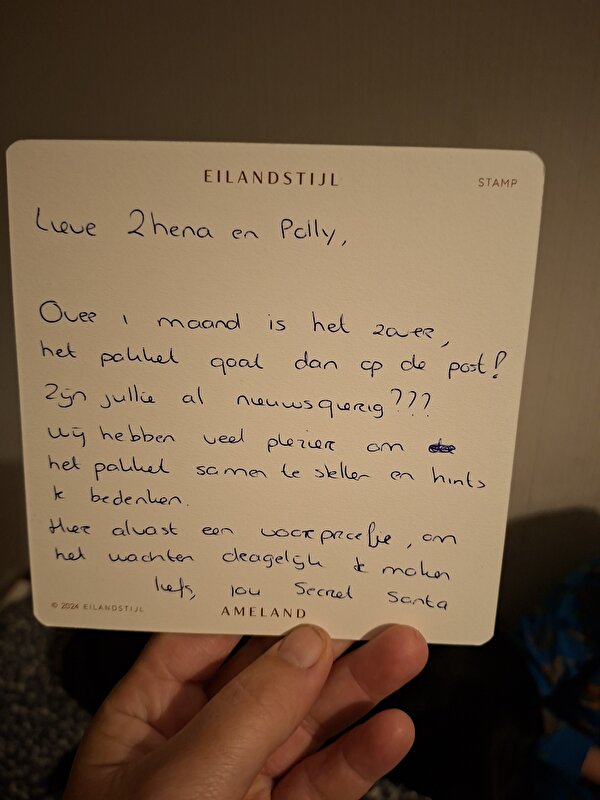 EILANDSTIJL
STAMP
Lieve Zhena en Polly,
Over 1 maand is het zover,
het pakket gaat dan op de post!
Zijn jullie al nieuwsgierig???
Wij hebben veel plezier om
het pakket samen te stellen en hints
te bedenken.
Hier alvast een voorproefje, om
het wachten dragelijk te maken
liefs, jou Secret Santa
© 2024 EILANDSTIJL
AMELAND